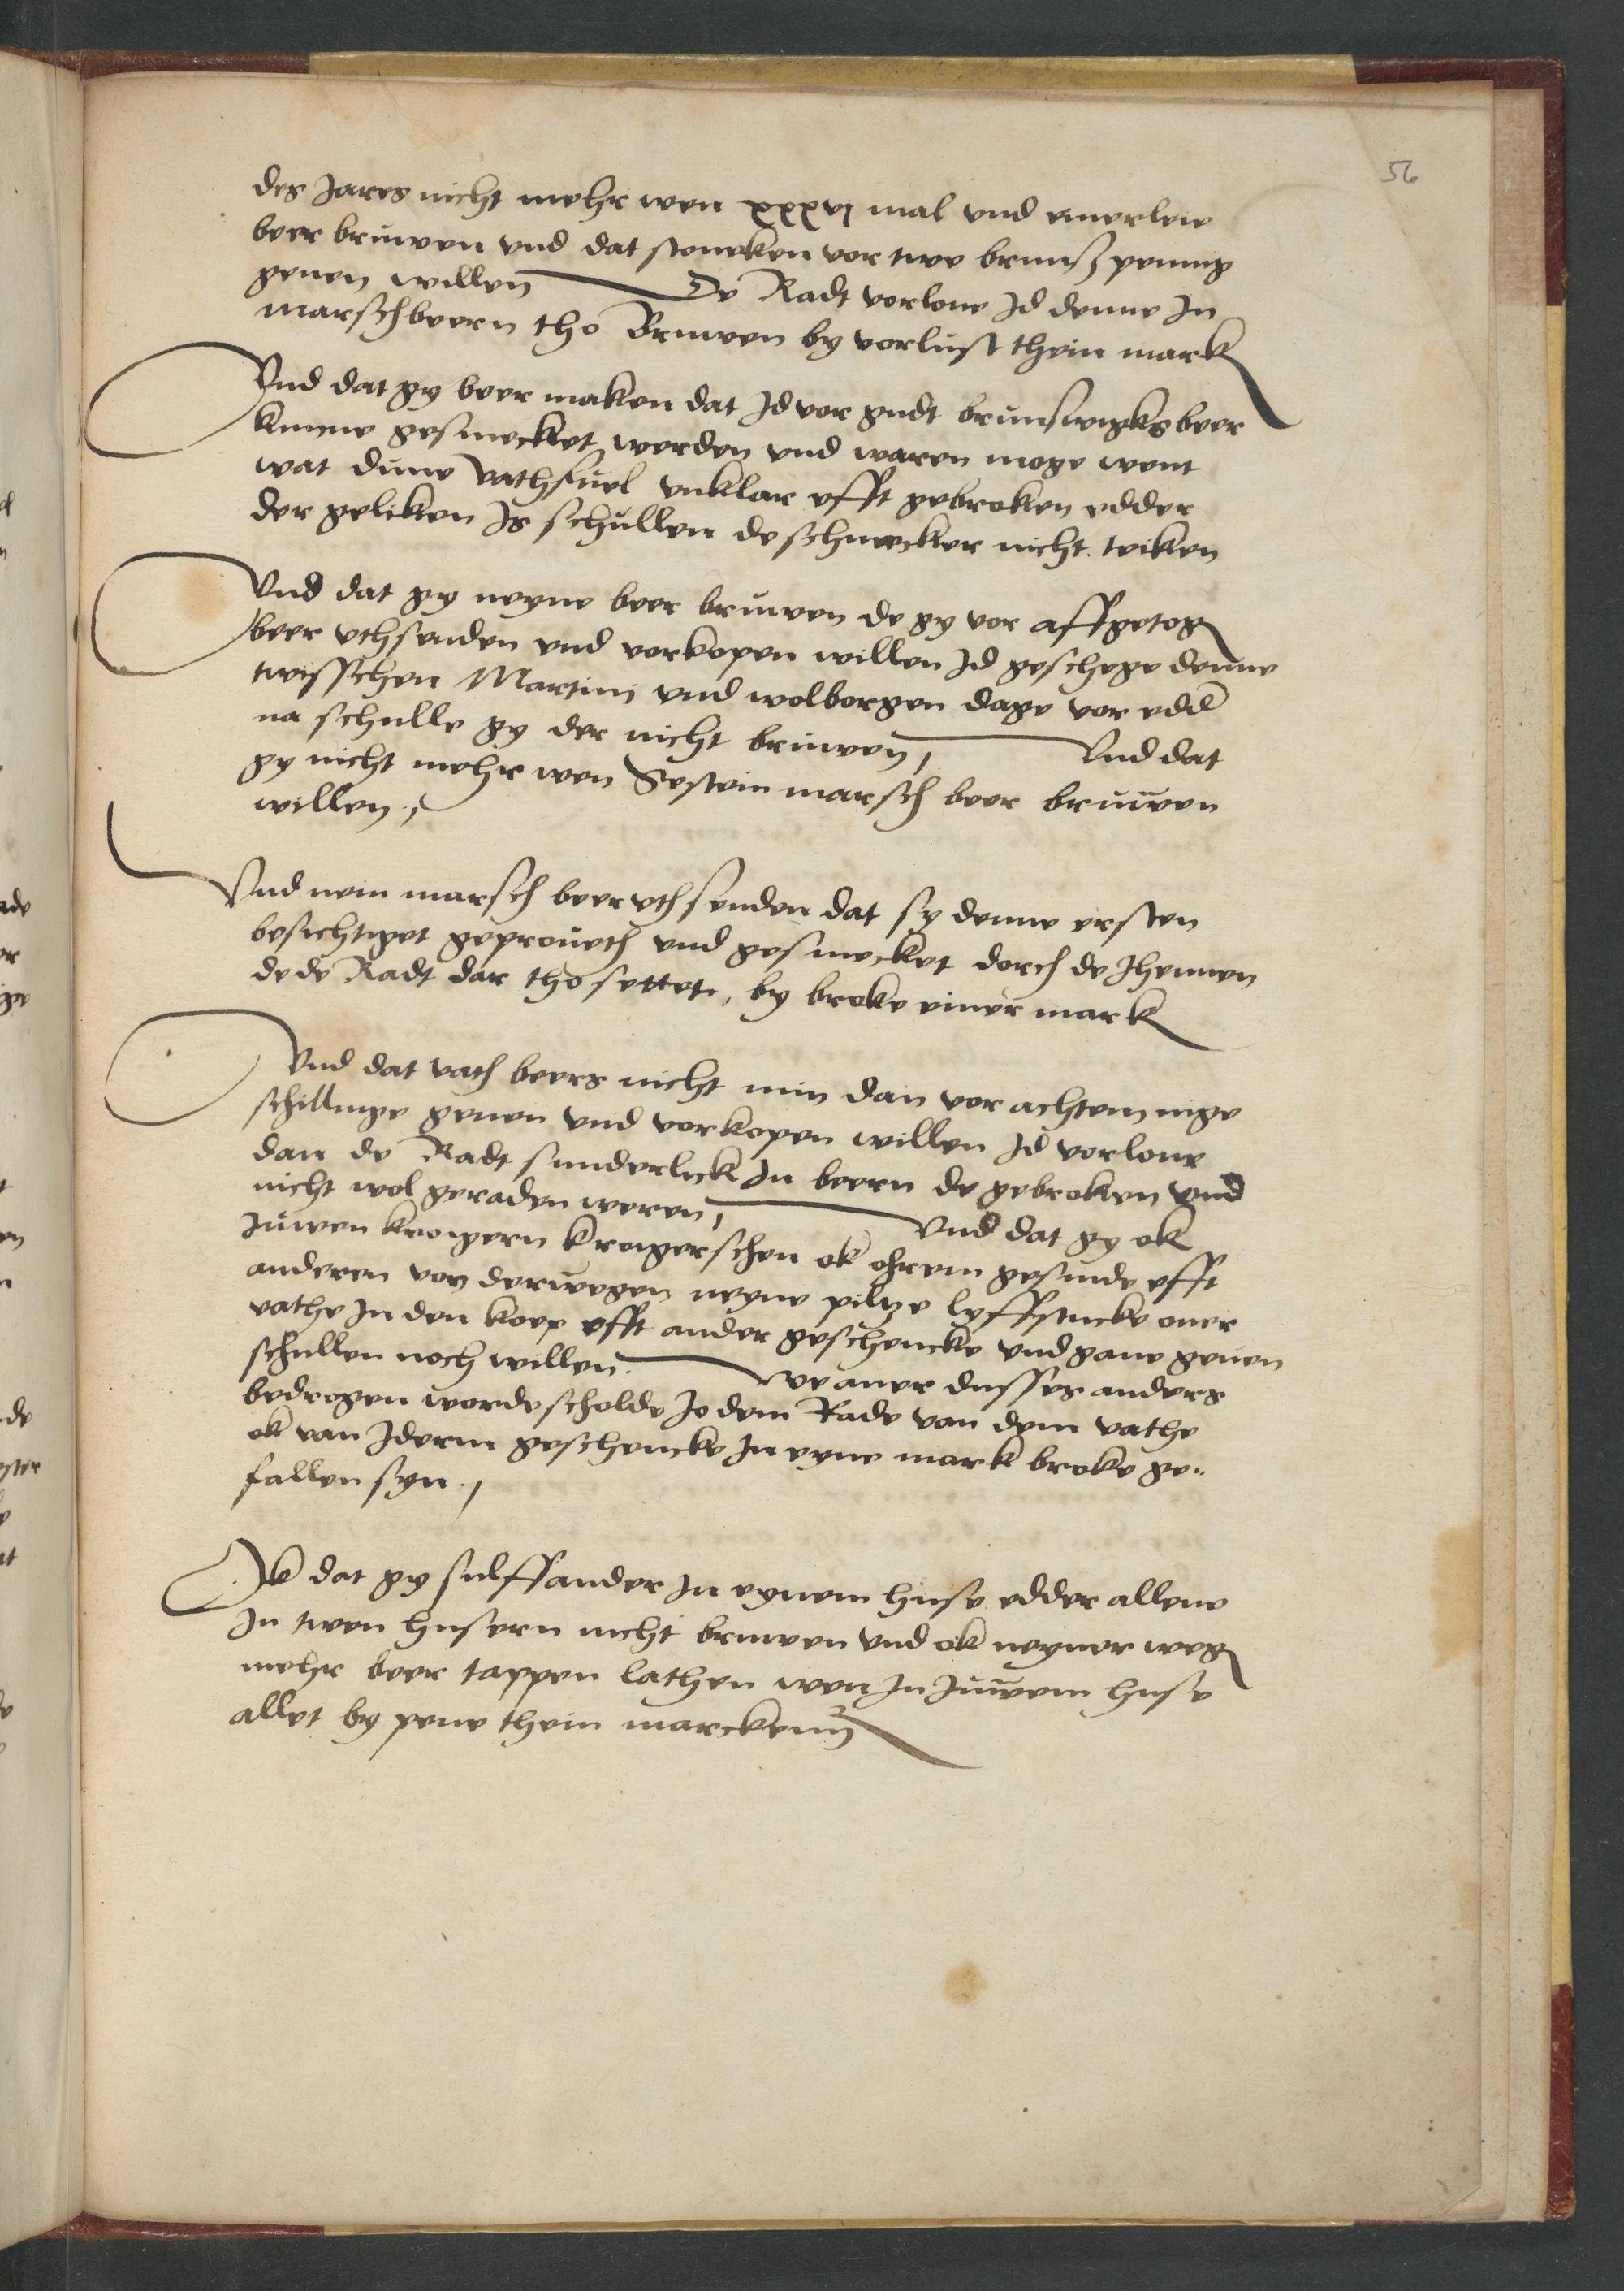 56
des Jares nicht mehr wen xxxvj mal vnd einerleie
beer bruwen vnd dat stoueken vor twe brunß penning
geuen willen De Radt vorloue Jd denne In
marschbeern tho Bruwen by vorlust thein mark
Vnd dat gy beer maken dat Jd vor gudt brunswigks beer
kunne gesmecket werden vnd waren moge went
wat dunne vathfuel vnklar efft gebroken edder
der geliken Js schullen de schmecker nicht teiken
Vnd dat gy neyne beer bruwen de gy vor affgetog
beer vthsenden vnd vorkopen willen Jd geschege denne
twisschen Martini vnd wolborgen dage vor edd
na schulle gy der nicht bruwen, Vnd dat
gy nicht mehr wen Sestein marsch beer bruwen
willen,
Vnd nein marsch beer vthsenden dat sy denne ersten
besichtiget geproueth vnd gesmecket dorch de Jhennen
de de Radt dar tho settet, by broke einer mark
Vnd dat vath beers nicht min dan vor achtein nige
schillinge geuen vnd vorkopen willen Jd vorloue
dan de Radt sunderlick In beern de gebroken vnd
nicht wol geraden weren, Vnd dat gy ok
Juwen krogern krogerschen ok ohrem gesinde efft
anderen von derwegen neyne piltze lyffstucke ouer
vathe In den koep efft ander geschencke vnd gaue geuen
schullen noch willen. We auer dusses anders
bedrogen worde scholde Jo dem Rade van dem vathe
ok van Jderm geschencke In eyne mark broke ge"
fallen syn.,
Ok dat gy sulffander In eynem huse edder allene
In twen husern nicht bruwen vnd ok neyner weg
mehr beer tappen lathen wen In Juwem huse
allet by pene thein marckenn